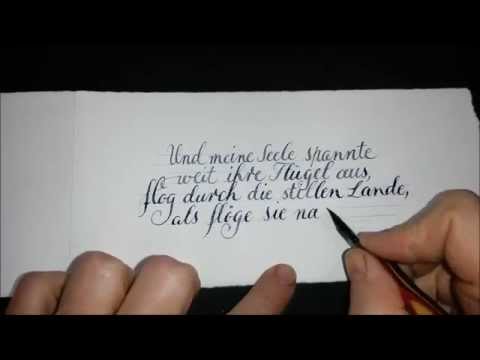 Und meine Seele spannte
weit ihre Flügel aus,
flog durch die stillen Lande,
als flöge sie na